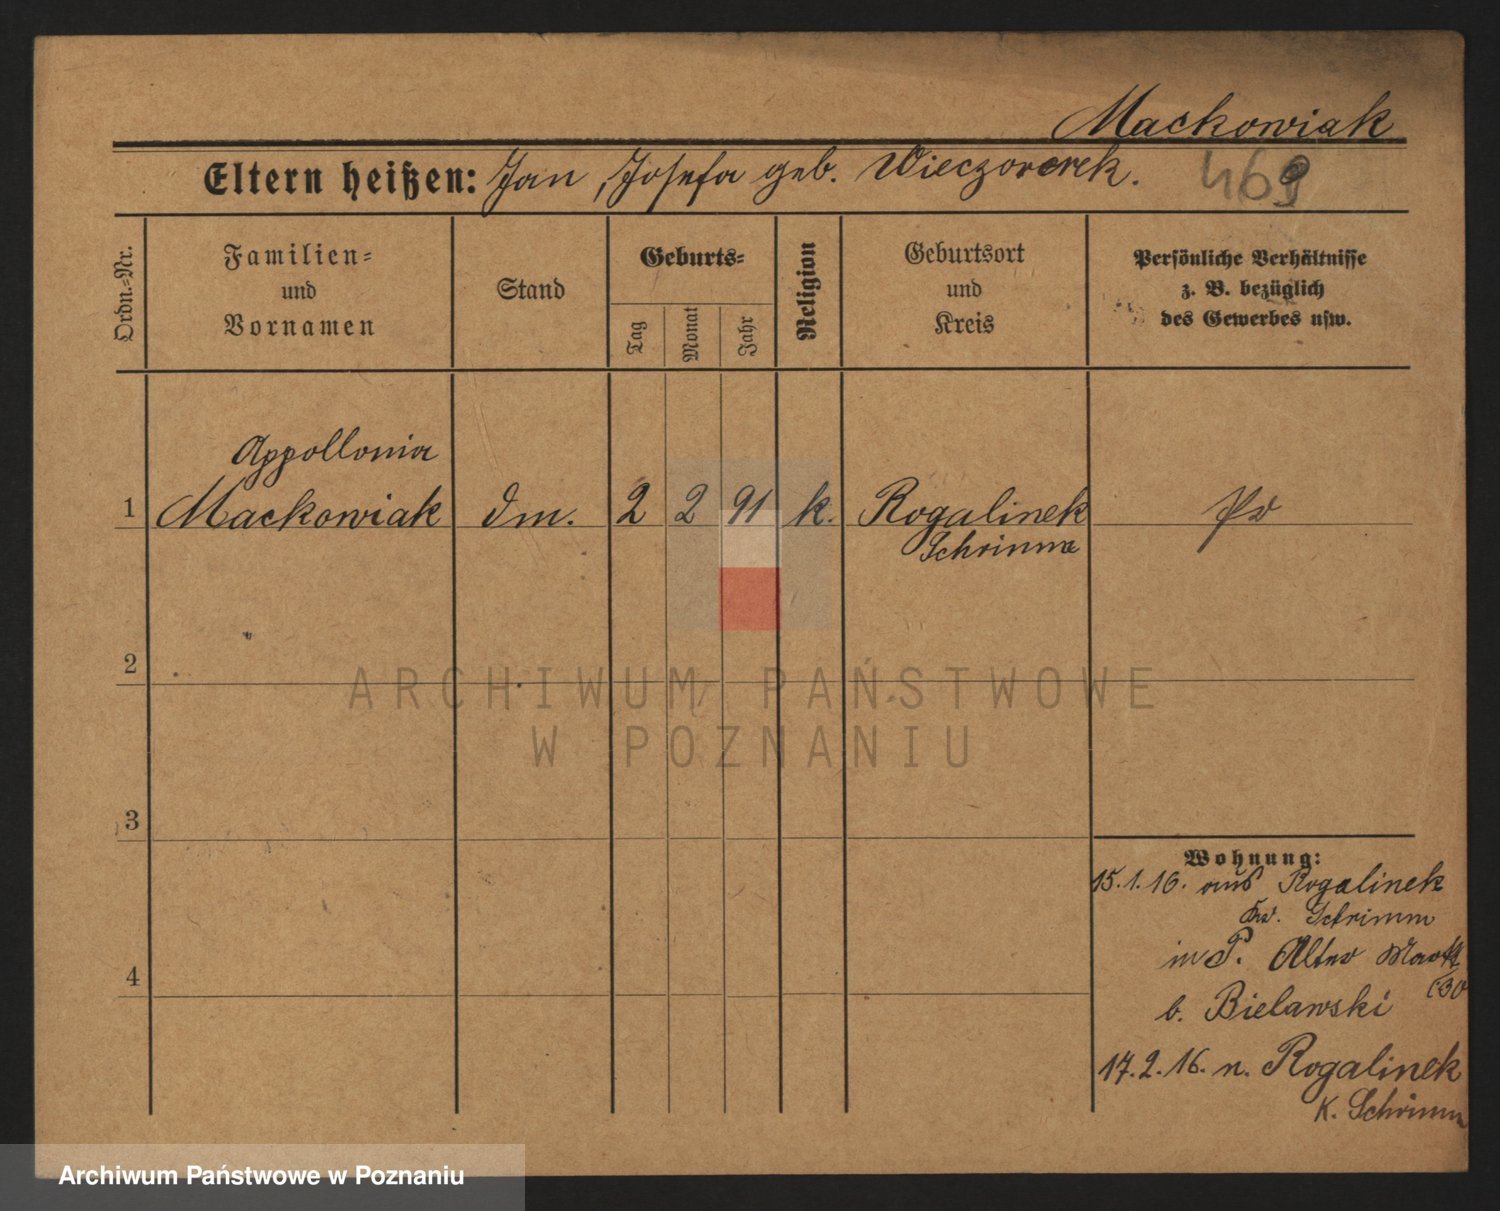 Mackowiak
Eltern heißen: Jan, Josefa geb. Wieczorerek.
469
Ordn.-Nr.
Familien-
und
Vornamen
Stand
Geburts-
Tag
Monat
Jahr
Religion
Geburtsort
und
Kreis
Persönliche Verhältnisse
z. B. bezüglich
des Gewerbes usw.
Appollonia
1 Mackowiak dm. 2 2 91 k. Rogalinek
Schrimm
2
3
4
Wohnung:
15.1.16. aus Rogalinek
Kr. Schrimm
in P. Alter Markt
b. Bielawski
17.2.16. n. Rogalinek
K. Schrimm
ARCHIWUM PAŃSTWOWE
W POZNANIU
Archiwum Państwowe w Poznaniu